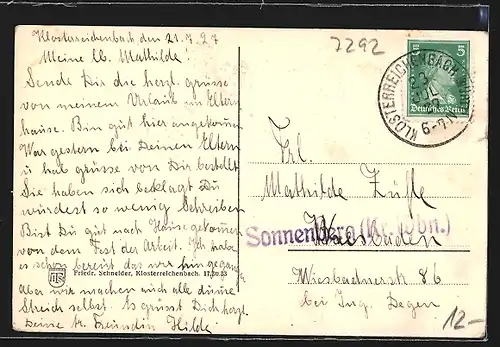 Klosterreichenbach den 21.7.27
Meine lb. Mathilde!
Sende Dir die herzl. Grüsse
von meinem Urlaub im Eltern
hause. Bin gut hier angekommen
War gestern bei Deinen Eltern
u hab grüsse von Dir bestellt
Sie haben sich beklagt Du
würdest so wenig Schreiben
Bist Du gut nach Hause gekommen
von dem Fest der Arbeit. Ich habe
es schon bereut das wir hingegang.
Aber wir machen auch alle dume
Streich selbst. Es grüsst Dich herzl.
Deine tr. Freundin Hilde
Friedr. Schneider, Klosterreichenbach.
7292
5
Deutsches Reich
KLOSTERREICHENBACH
6-7N
Frl.
Mathilde
Sonnenberg (Kr. Wbn.)
Wiesbaden
Wiesbadnerstr 86
bei Ing. Degen
12-